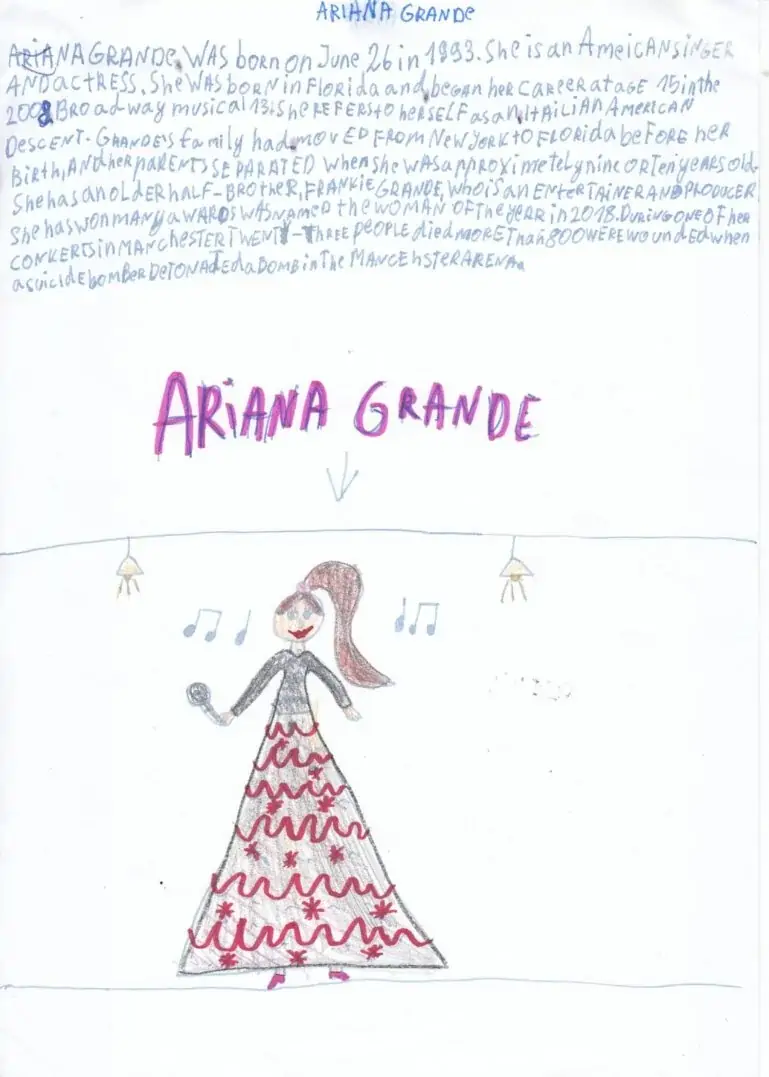 ARIANA GRANDE
ARIANA GRANDE WAS born on June 26 in 1993. She is an AmeicAN SINGER
AND ACTRESS. She WAS bORN in FLORIda and began her CAREER at aGE 15 in the
2008 BROadway musical 13. She REFERS to herSELF as an ItAiLiAn AmeRiCAN
DesCENT. GRANDE's family had moVED FROM NeW YORK to FLORida beFORE her
Birth, AND her paRENTS SEPARATED when she WAS approximetely nine OR Ten years old.
She has an OLDER hALF-BROtheR, FRANKiE GRANDE, Who is an ENterTAINER AND PRODUCER
She has wON mANy aWARDS WAS NAMED the WOMAN OF The yEAR in 2018. DURING ONE OF her
CONKERTS in MANCHESTER TWENTY-THREE PEOPLE died MORE Than 800 WERE WOunDED when
a suicidE bomBER DETONATED a BOMB in The MANCEhsTER ARENA.
ARiANA GRANDE